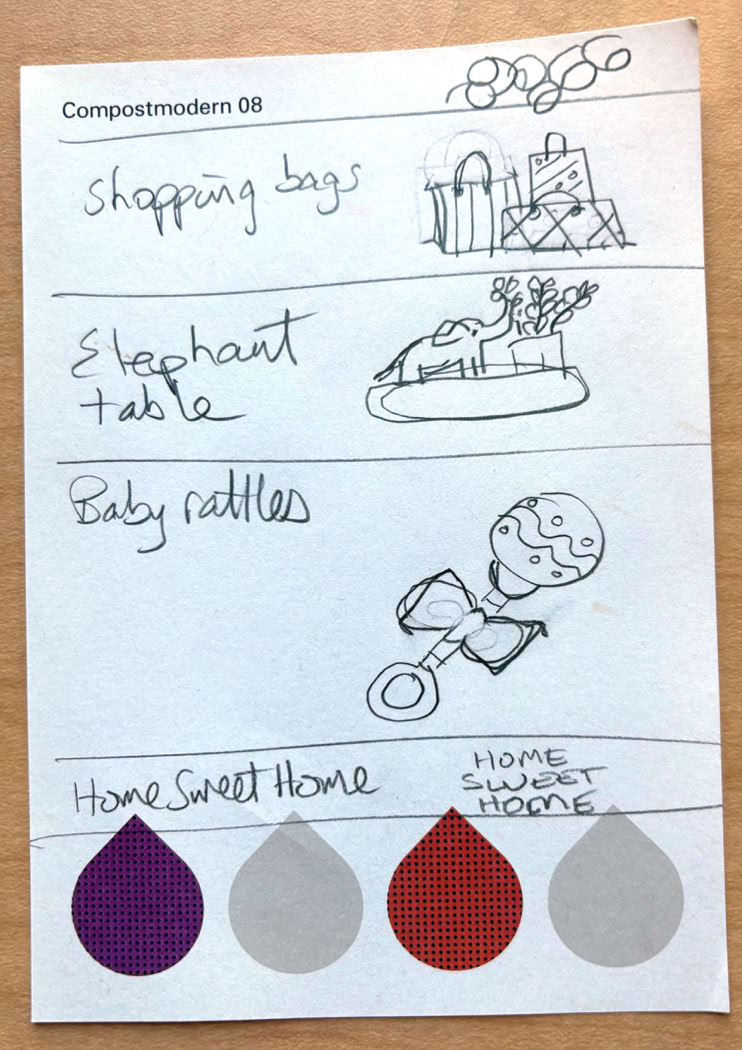 Compostmodern 08
Shopping bags
Elephant
table
Baby rattles
Home Sweet Home
HOME
SWEET
HOME